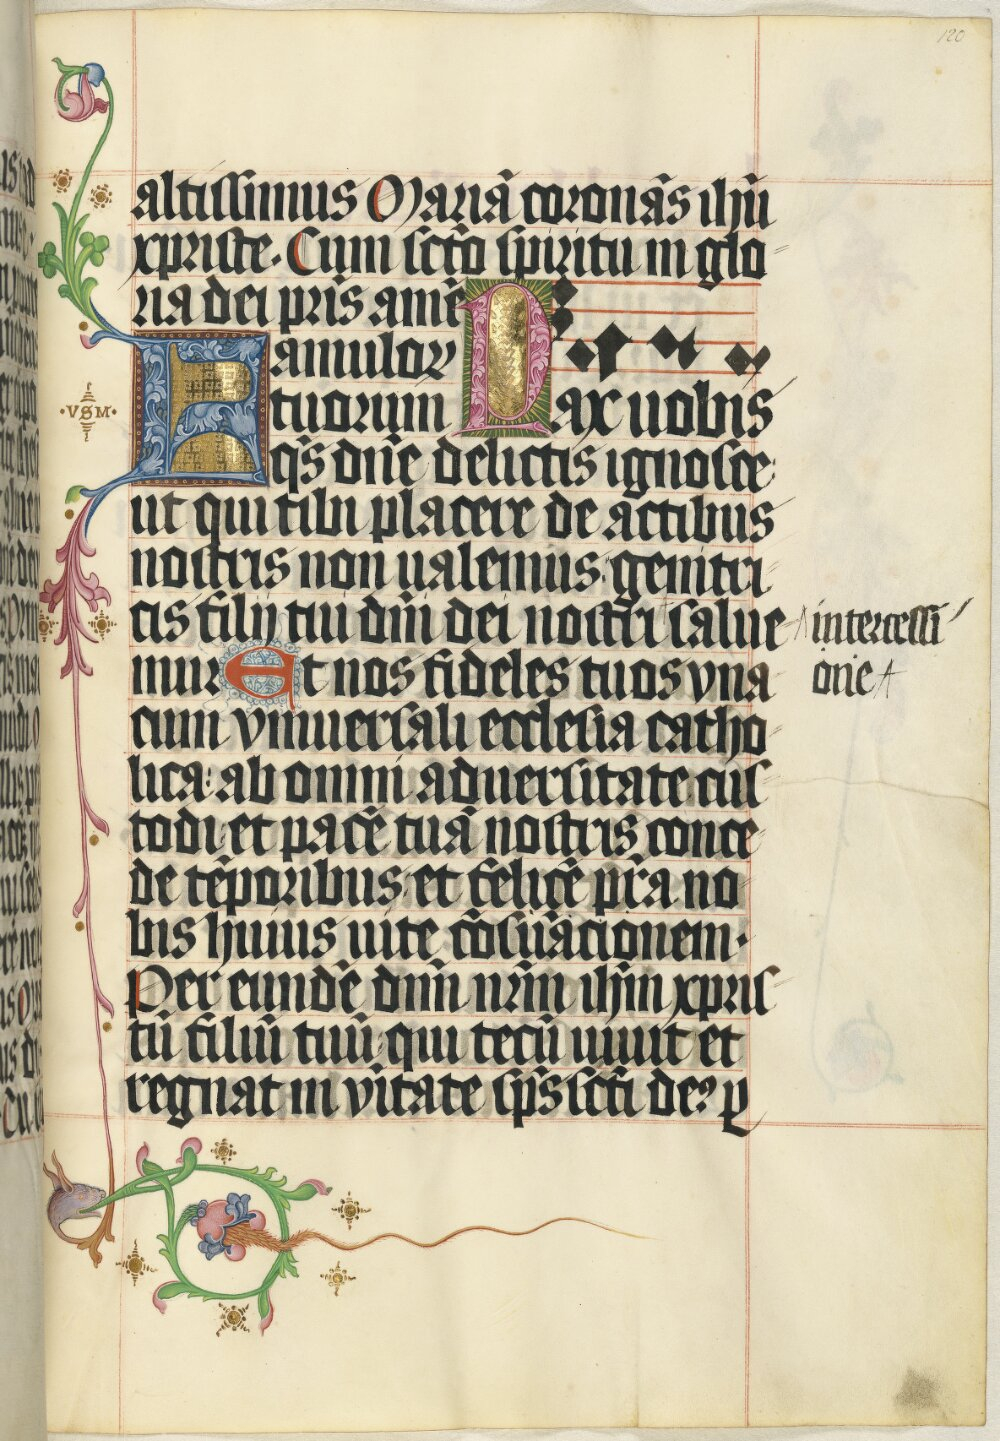 120
altissimus Mariā coronās ihū
xpriste. Cum sctō spiritu in glo
ria dei pris amē P
Famulor
tuorum ax uobis
qs dn̄e delictis ignosce
ut qui tibi placere de actibus
nostris non ualemus: genitri
cis filij tui dn̄i dei nostri salue intercessi
mur Et nos fideles tuos vna one
cum vniuersali ecclesia catho
lica: ab omni aduersitate cus
todi: et pacē tuā nostris conce
de tēporibus: et felicē pr̄a no
bis huius uite cōsūacionem.
Per eundē dnm̄ nrm̄ ihm̄ xpris
tū filiū tuū: qui tecū uiuit et
regnat in vītate sps̄ scti de? p
·VSM·